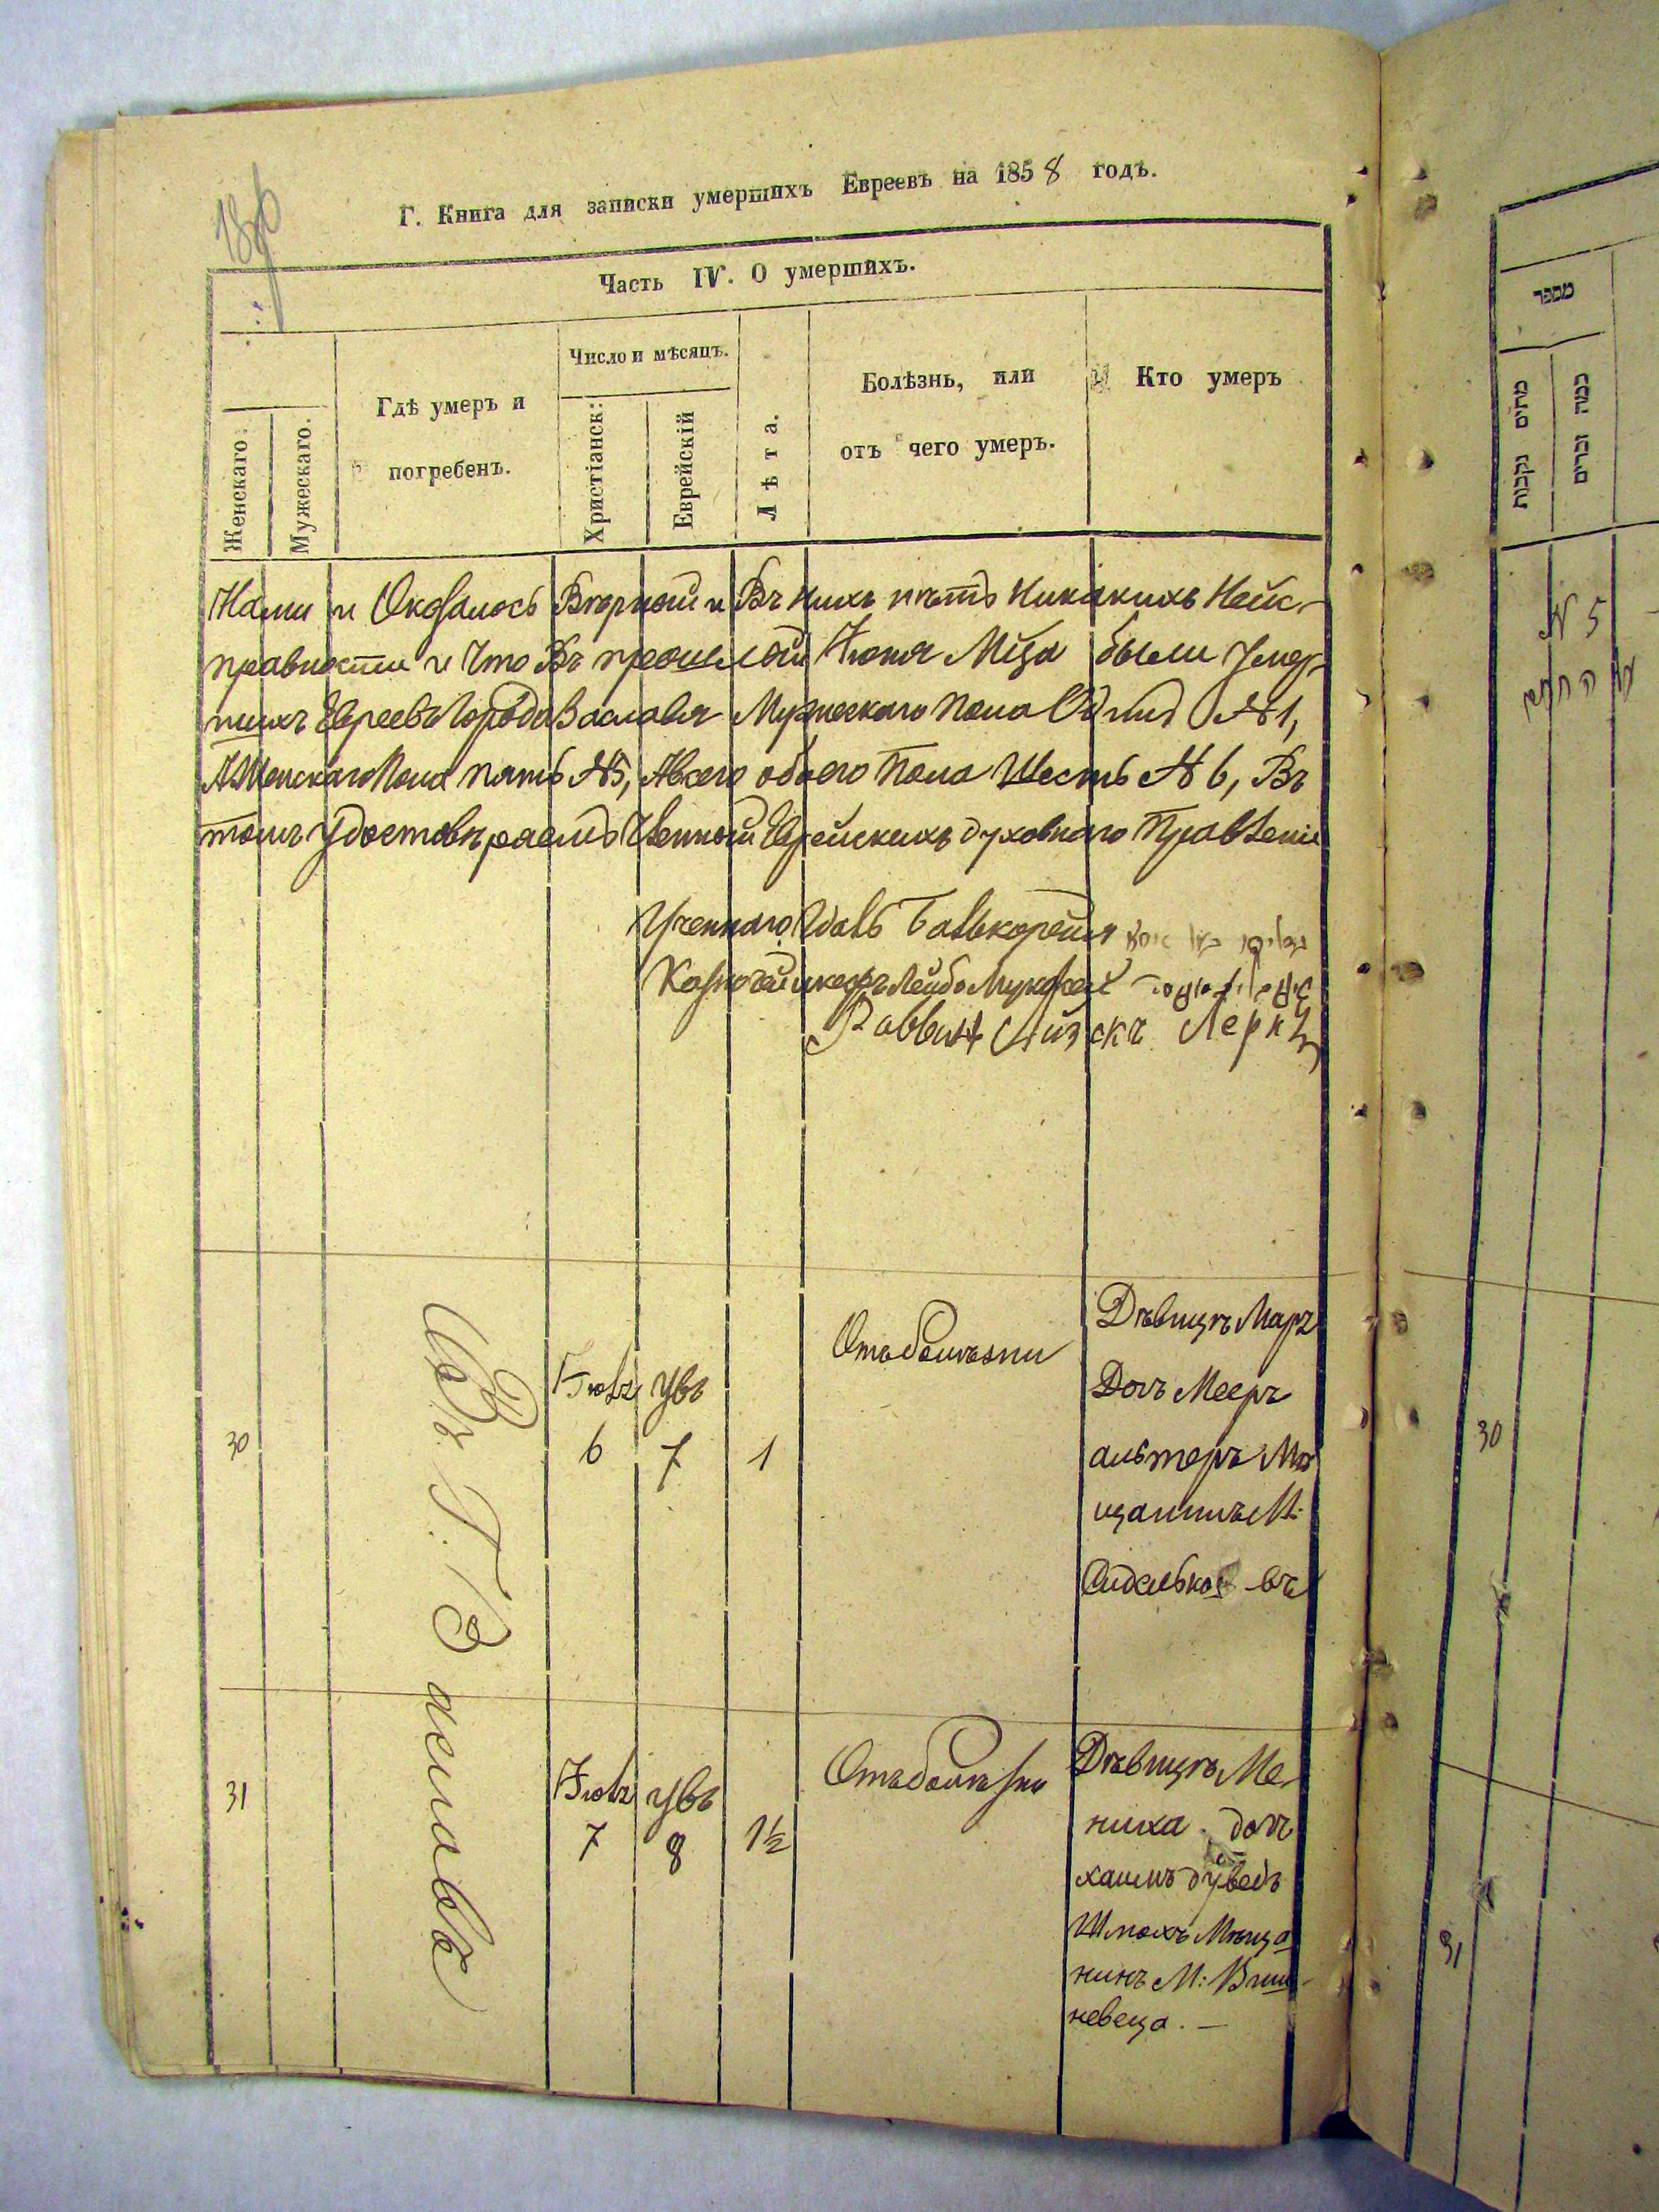 Г. Книга для записки умершихъ Евреевъ на 1858 годъ.
Часть IV. О умершихъ.
Женскаго.
Мужескаго.
Гдѣ умеръ и
погребенъ.
Число и мѣсяцъ.
Христіанск:
Еврейскій
Лѣта.
Болѣзнь, или
отъ чего умеръ.
Кто умеръ
Нами и Оказалось Вѣрной и Въ нихъ нѣтъ никакихъ Неис-
правности и Что Въ прошлой Іюня Мца были Умер-
шихъ Евреевъ Города Заславля Мужескаго пола Одинъ №1,
А Женскаго Пола пять №5, Авсего обоего Пола Шесть № 6, Въ
томъ Удостовѣряемъ Члены Еврейскихъ духовнаго Правленія
Ученнаго
Раввинъ
30
Въ Г. Заславлѣ
Іюль
6
увъ
7
1
Отъ болѣзни
Дѣвицѣ Маръ
Дочь Мееръ
альтеръ Мѣ
щанинъ М:
31
Іюль
7
увъ
8
1½
Отъ болѣзни
Дѣвицѣ Ме-
ниха. дочь
хаимъ
Шмохъ Мѣща
нинъ М: Виш-
невеца. —
מספר
מתים נקבות
כמה זכרים
№ 5
30
31